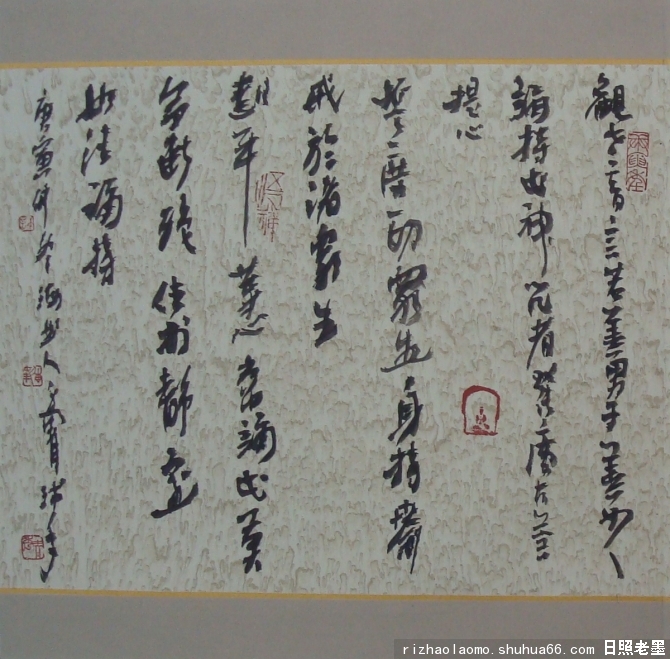 觀世音言若善男子善女人
誦持此神咒者發廣大菩
提心
誓度一切眾生身持齋
戒於諸眾生
起平等心常誦此莫
令斷絕住於靜室
如法誦持
庚寅仲冬海曲人
rizhaolaomo.shuhua66.com 日照老墨